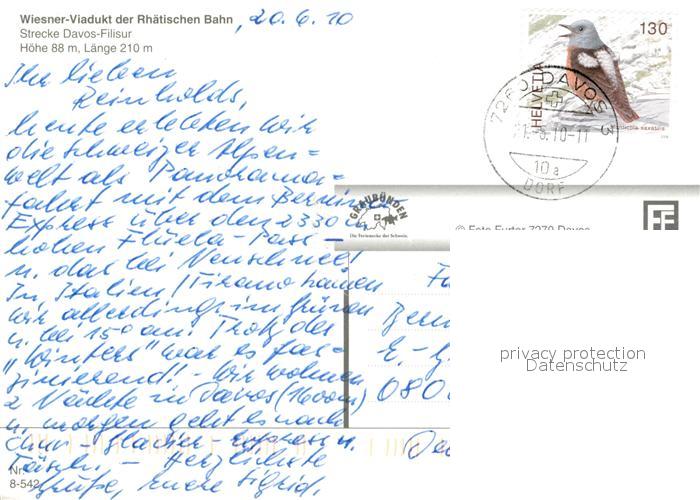 Wiesner-Viadukt der Rhätischen Bahn
Strecke Davos-Filisur
Höhe 88 m, Länge 210 m
, 20.6.10
Ihr lieben
Reinholds,
heute erlebten wir
die schweizer Alpen=
welt als Panorama=
fahrt mit dem Bernina
Express über den 2330 m
hohen Flüela-Pass -
u. das bei Neuschnee!
In Italien/Tirano kamen
wir allerdings im grünen
u. bei 15° an. Trotz des
"Winters" war es fas=
zinierend! - Wir wohnen
2 Nächte in Davos (1600m)
u. morgen geht es nach
Chur - Glacier Express u.
Täsch. - Herzlichste
Grüße, eure Sigrid.
Nr.
8-542
130
HELVETIA
Monticola saxatilis
7260 DAVOS 3
10-11
10a
DORF
GRAUBÜNDEN
Die Ferienecke der Schweiz.
© Foto Furter 7270 Davos
FF
Fa
E.-
080
privacy protection
Datenschutz